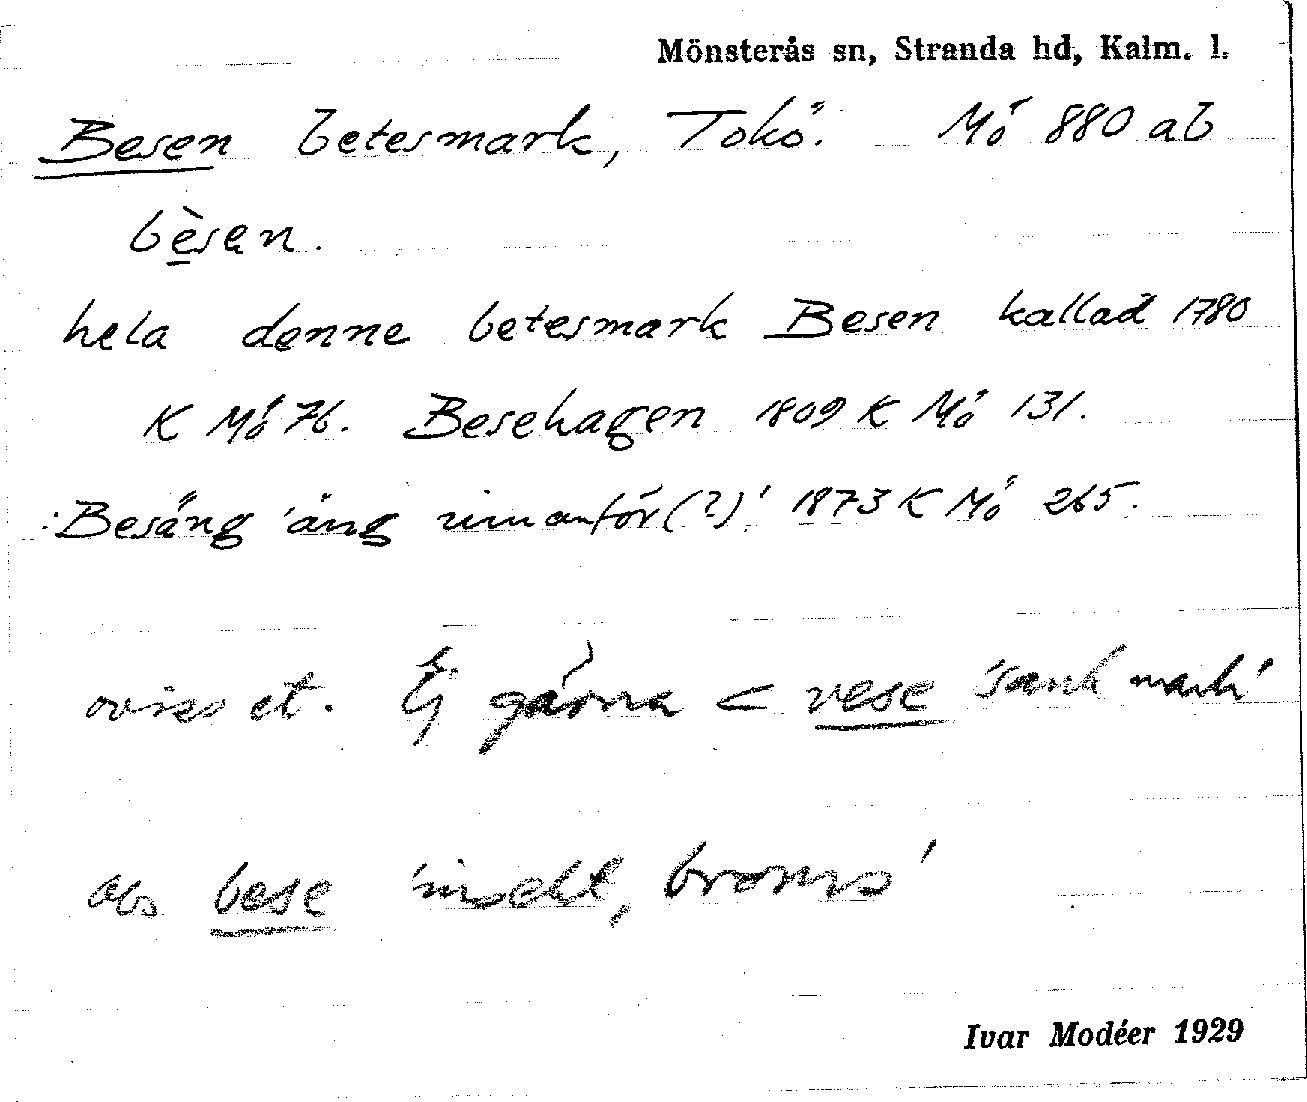 Mönsterås sn, Stranda hd, Kalm. l.
Besen betesmark, Tokö. Mö 880 ab
bèsen.
hela denne betesmark Besen kallad 1780
K Mö 76. Besehagen 1809 K Mö 131.
:Besäng 'äng (?)' 1873 K Mö 265.
oviss et. Ej gärna < vese 'sank mark'
obs bese 'insekt, broms'
Ivar Modéer 1929